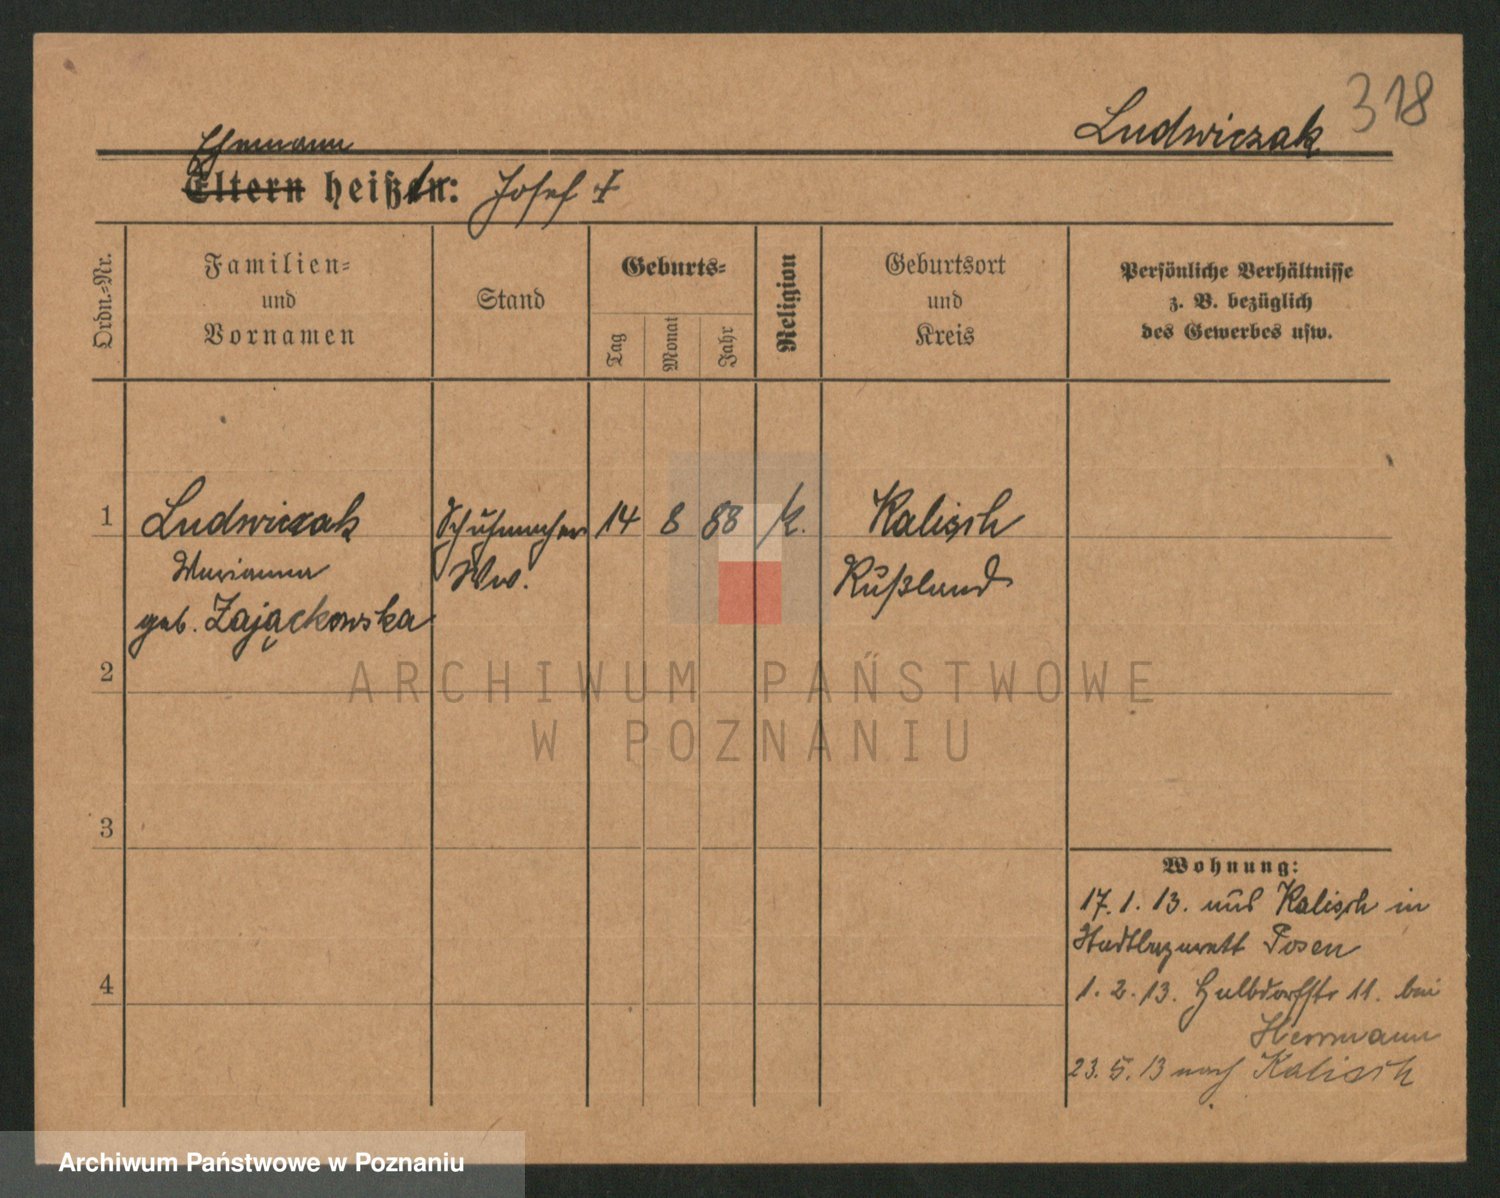 318
Ludwiczak
Ehemann
Eltern heißen: Josef †
Ordn.-Nr.
Familien-
und
Vornamen
Stand
Geburts-
Tag
Monat
Jahr
Religion
Geburtsort
und
Kreis
Persönliche Verhältnisse
z. B. bezüglich
des Gewerbes usw.
1 Ludwiczak Schuhmacher 14 8 88 k. Kalisch
Marianna Ww. Rußland
geb. Zająckowska
2
3
4
Wohnung:
17. 1. 13. aus Kalisch in
Stadtlazarett Posen
1. 2. 13. Halbdorfstr 11. bei
Herrmann
23. 5. 13 nach Kalisch
ARCHIWUM PAŃSTWOWE
W POZNANIU
Archiwum Państwowe w Poznaniu